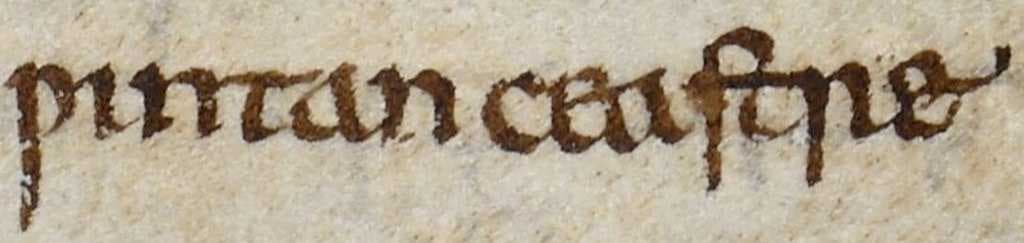 ƿintan ceastre